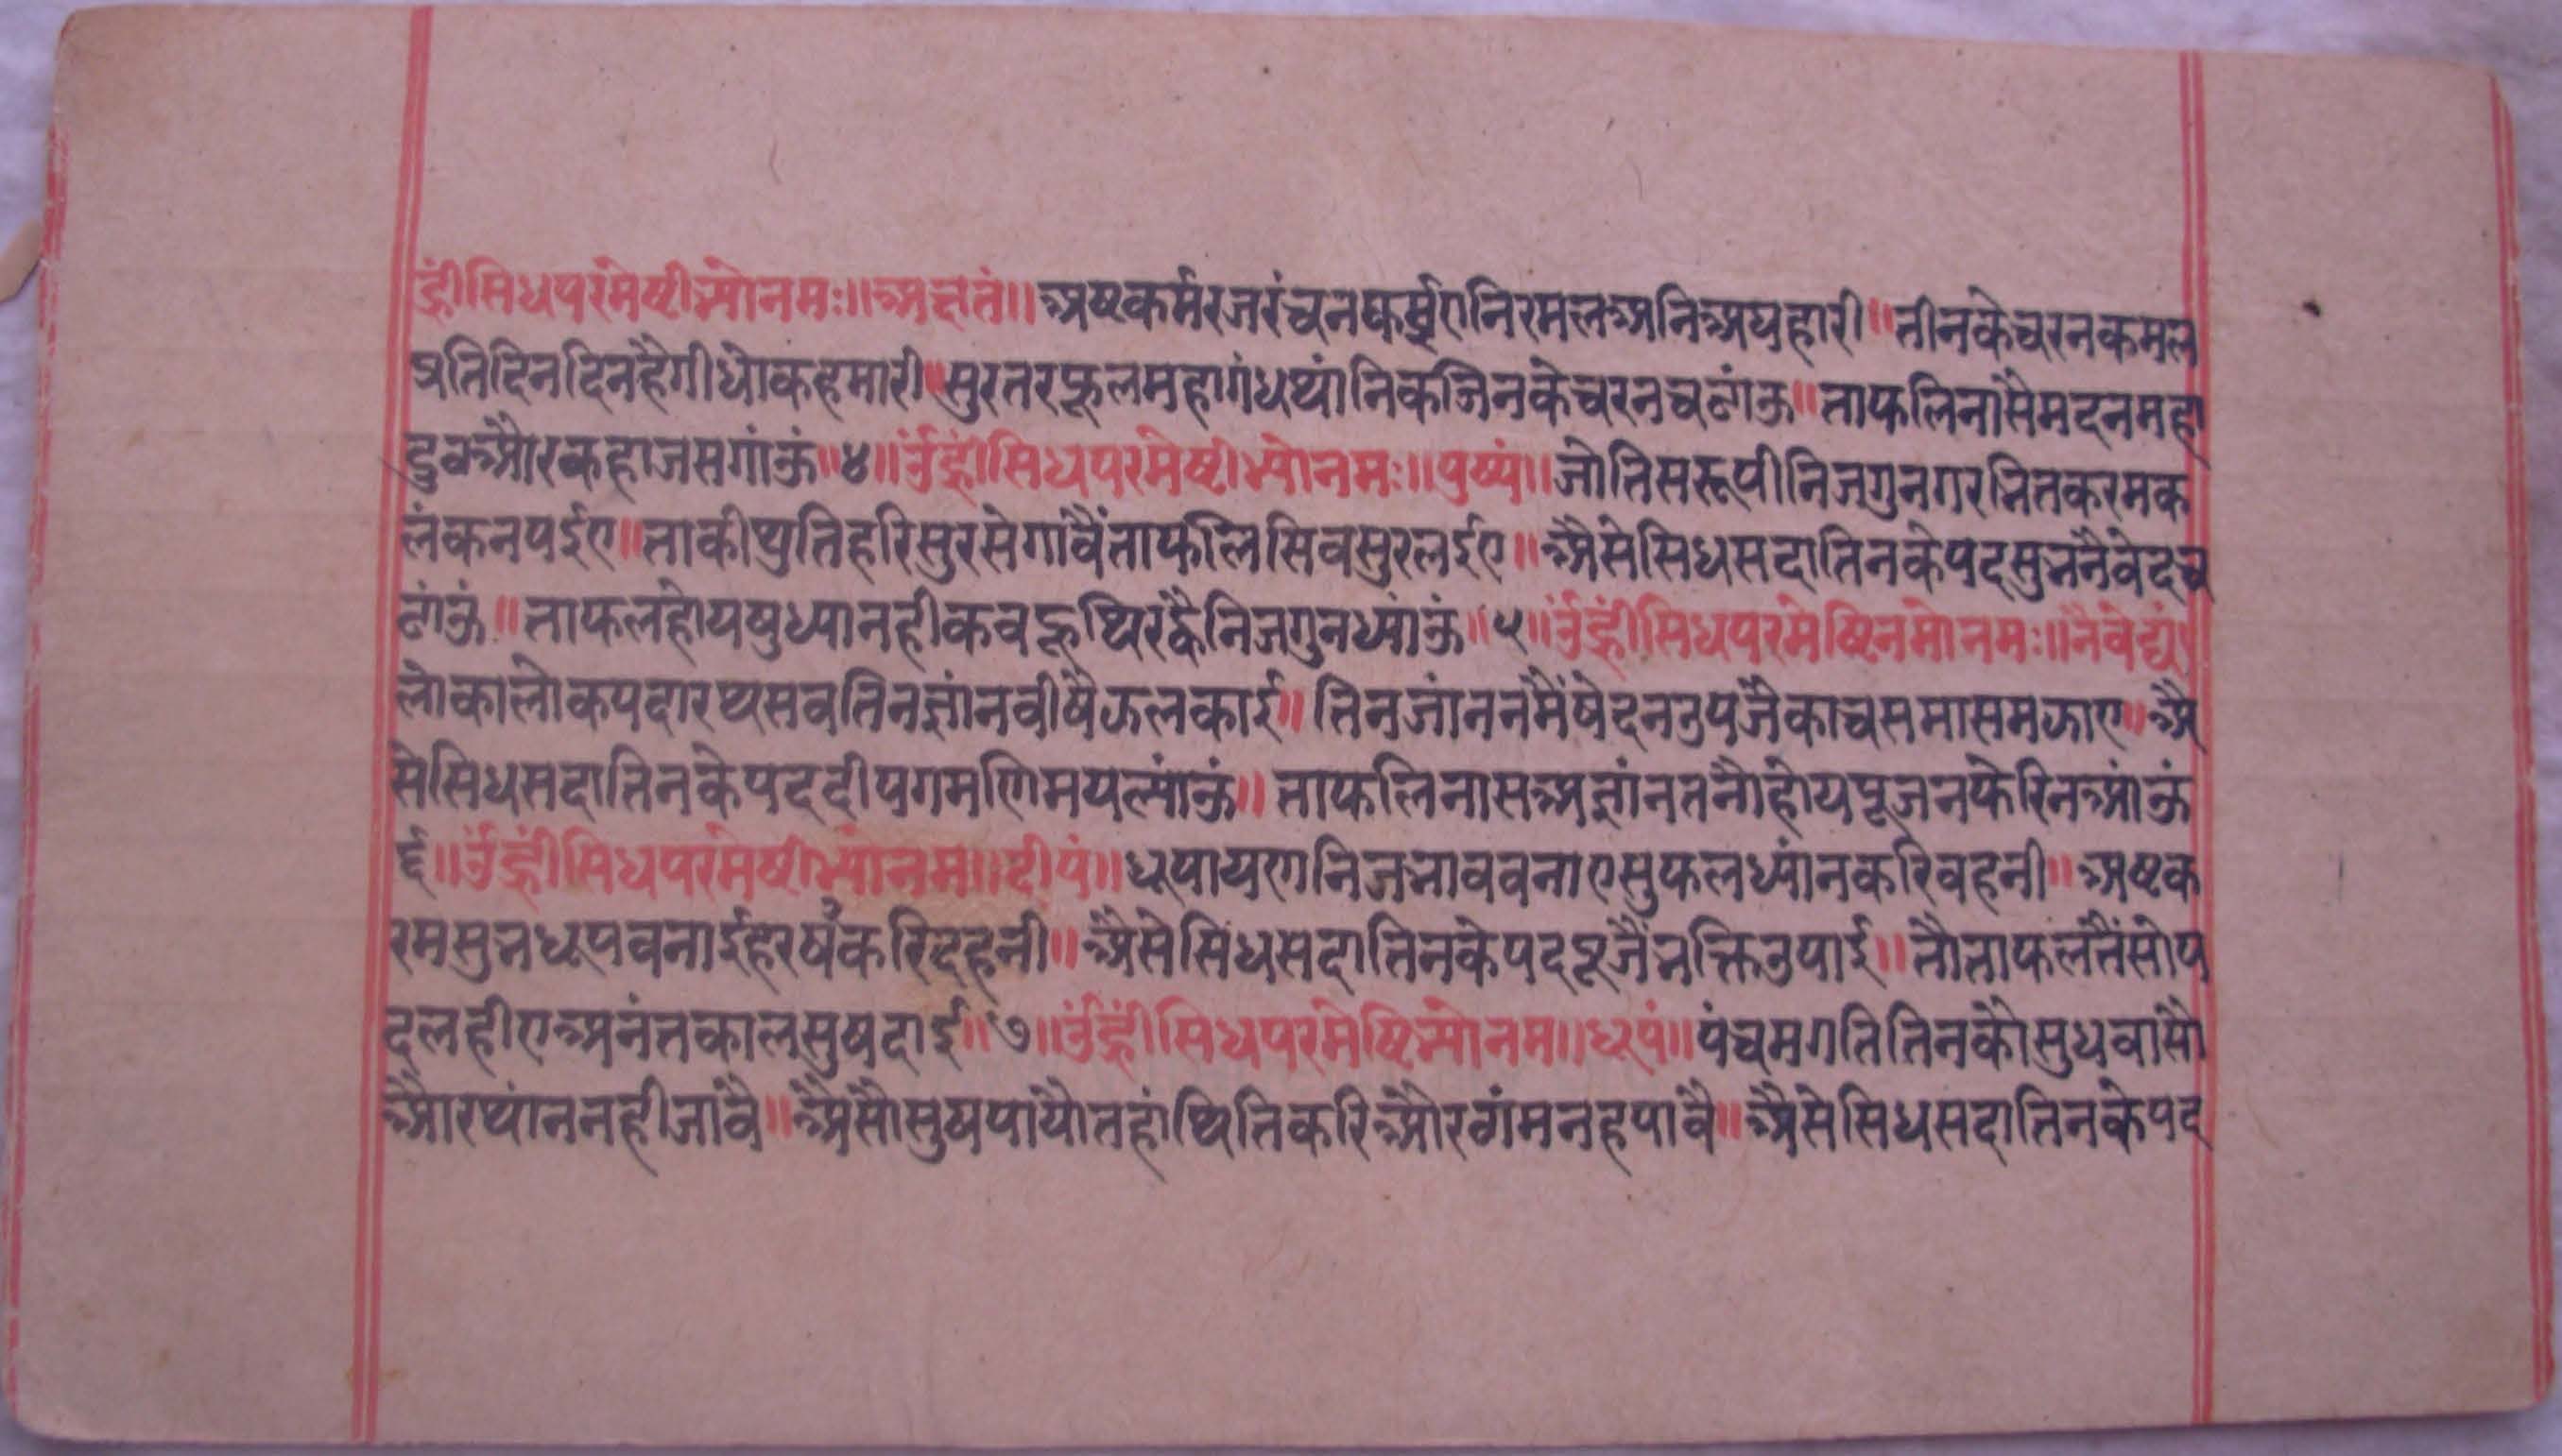 ह्रींसिधपरमेष्टीभ्योनमः॥अक्षतं॥अष्टकर्मरजरंचनफर्सएनिरमलअनिअयहारी॥तीनकेचरनकमल
प्रतिदिनदिनहैगीधोकहमारी॥सुरतरफूलमहागंधथांनिकजिनकेचरनचठांऊ॥ताफलिनासैमदनमहा
दुवऔरकहाजसगांऊं॥४॥उंह्रींसिधपरमेष्टीभ्योनमः॥पुष्पं॥जोतिसरूपीनिजगुनगरभितकरमक
लंकनपईए॥ताकीथुतिहरिसुरसेगांवैंताफलिसिवसुरलईए॥अैसेसिधसदातिनकेपदसुभनैवेदच
ठांऊं॥ताफलहोयषुध्यानहीकवहूथिरह्वैनिजगुनध्यांऊं॥५॥उंह्रींसिधपरमेष्टिनमोनमः॥नैवेद्यं॥
लोकालोकपदारथसवतिनज्ञांनवीषैऊलकाई॥तिनजांननमैंषेदनउपजैकाचसमासमऊाए॥अै
सेसिधसदातिनकेपददीपगमणिमयल्यांऊं॥ताफलिनासअज्ञांनतनौहोयपूजनफेरिनआंऊं
६॥उंह्रींसिधपरमेष्टीभ्योनम॥दीपं॥धूपायएानिजभाववनाएसुफलध्यांनकरिवहनी॥अष्टक
रमसुभधूपवनाईहरषंकरिदहनी॥अैसेसिधसदातिनकेपदपूजैंभक्तिउपाई॥तौताफलतैंसोप
दलहीएअनंतकालसुषदाई॥७॥उंह्रींसिधपरमेष्टिभ्योनम॥धूपं॥पंचमगतितिनकौसुधवासौ
औरथांननहीजांवै॥अैसौसुषपायौतहांथितिकरिऔरगंमनहपावै॥अैसेसिधसदातिनकेपद